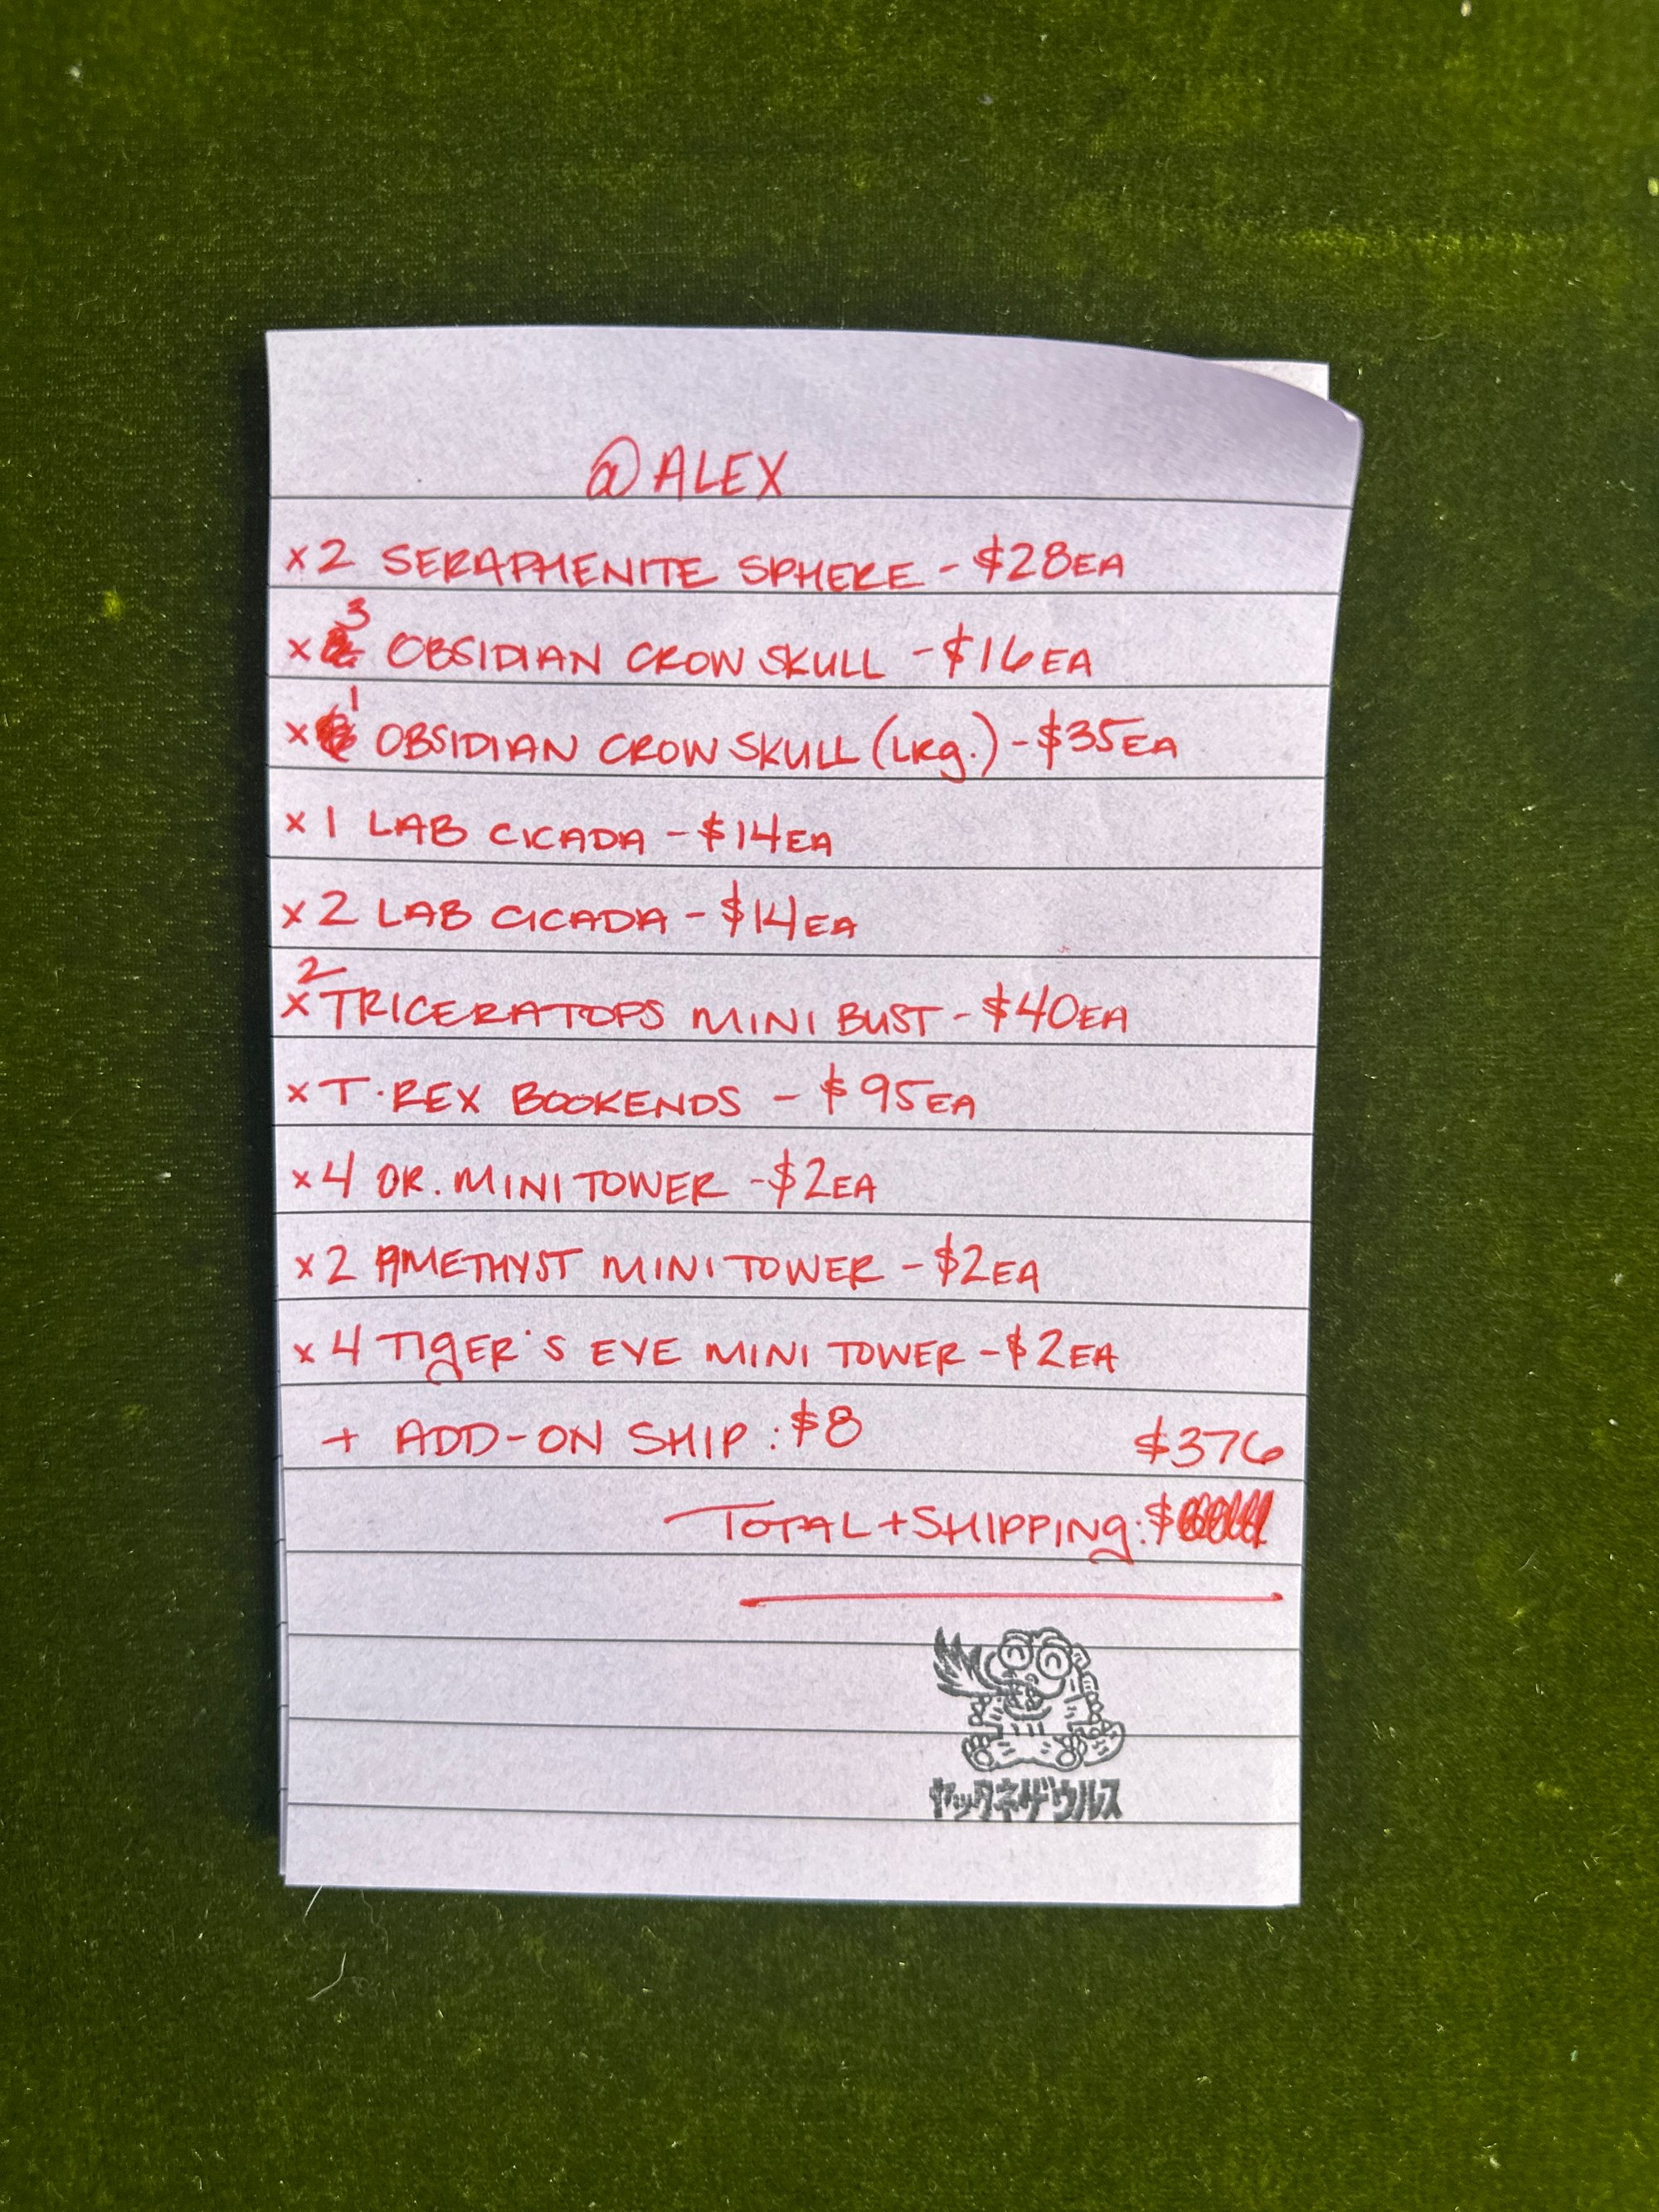 @ALEX
x2 SERAPHENITE SPHERE - $28EA
x3 OBSIDIAN CROW SKULL - $16EA
x1 OBSIDIAN CROW SKULL (LRg.) - $35EA
x1 LAB CICADA - $14EA
x2 LAB CICADA - $14EA
x2 TRICERATOPS MINI BUST - $40EA
x T-REX BOOKENDS - $95EA
x4 OR. MINI TOWER - $2EA
x2 AMETHYST MINI TOWER - $2EA
x4 TIGER'S EYE MINI TOWER - $2EA
+ ADD-ON SHIP: $8
$376
TOTAL + SHIPPING: $
ヤックネザウルス